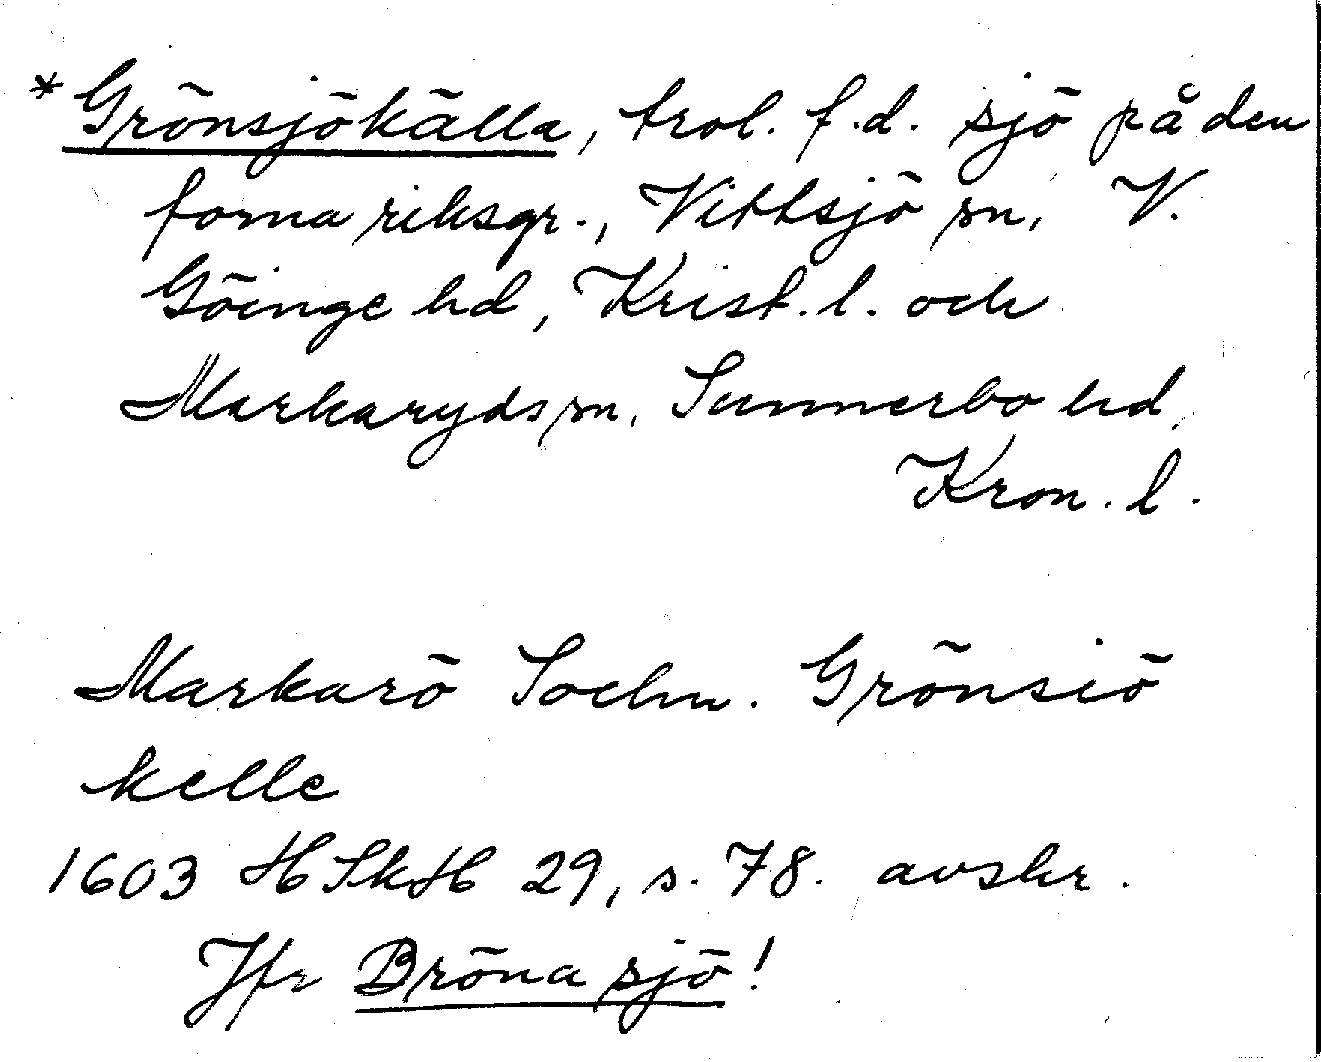 *Grönsjökälla, trol. f.d. sjö på den
forna riksgr., Vittsjö sn, V.
Göinge hd, Krist. l. och
Markaryds sn, Sunnerbo hd,
Kron. l.
Markarö Sochn. Grönsiö
kelle
1603 HSkH 29, s. 78. avskr.
Jfr Bröna sjö!